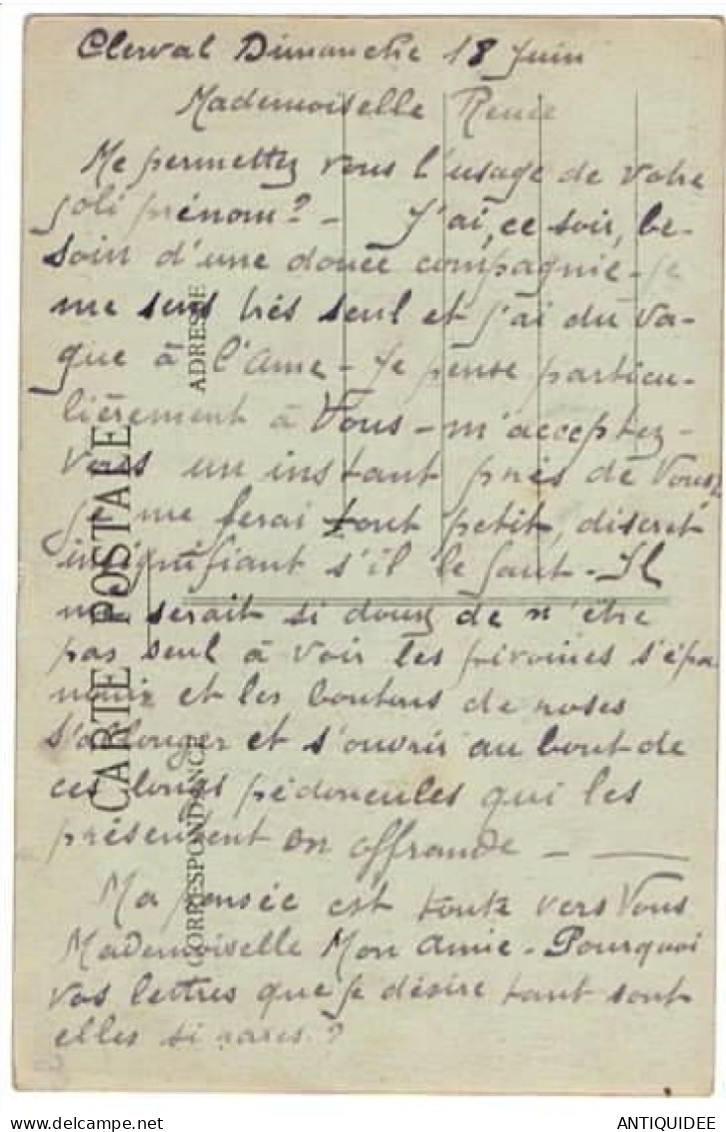 Clerval Dimanche 18 Juin
Mademoiselle Renée
Me permettez vous l'usage de votre
joli prénom? - J'ai, ce soir, be-
soin d'une douce compagnie - je
me sens très seul et j'ai du va-
gue à l'âme - Je pense particu-
lièrement à Vous - m'acceptez-
Vous un instant près de Vous,
je me ferai tout petit, discret
insignifiant s'il le faut - Il
me serait si doux de n'être
pas seul à voir les pivoines s'épa
nouir et les boutons de roses
s'allonger et s'ouvrir au bout de
ces longs pédoncules qui les
présentent en offrande -
Ma pensée est toute vers Vous
Mademoiselle Mon amie - Pourquoi
vos lettres que je désire tant sont
elles si rares?
CARTE POSTALE
CORRESPONDANCE
ADRESSE
delcampe.net
ANTIQUIDEE